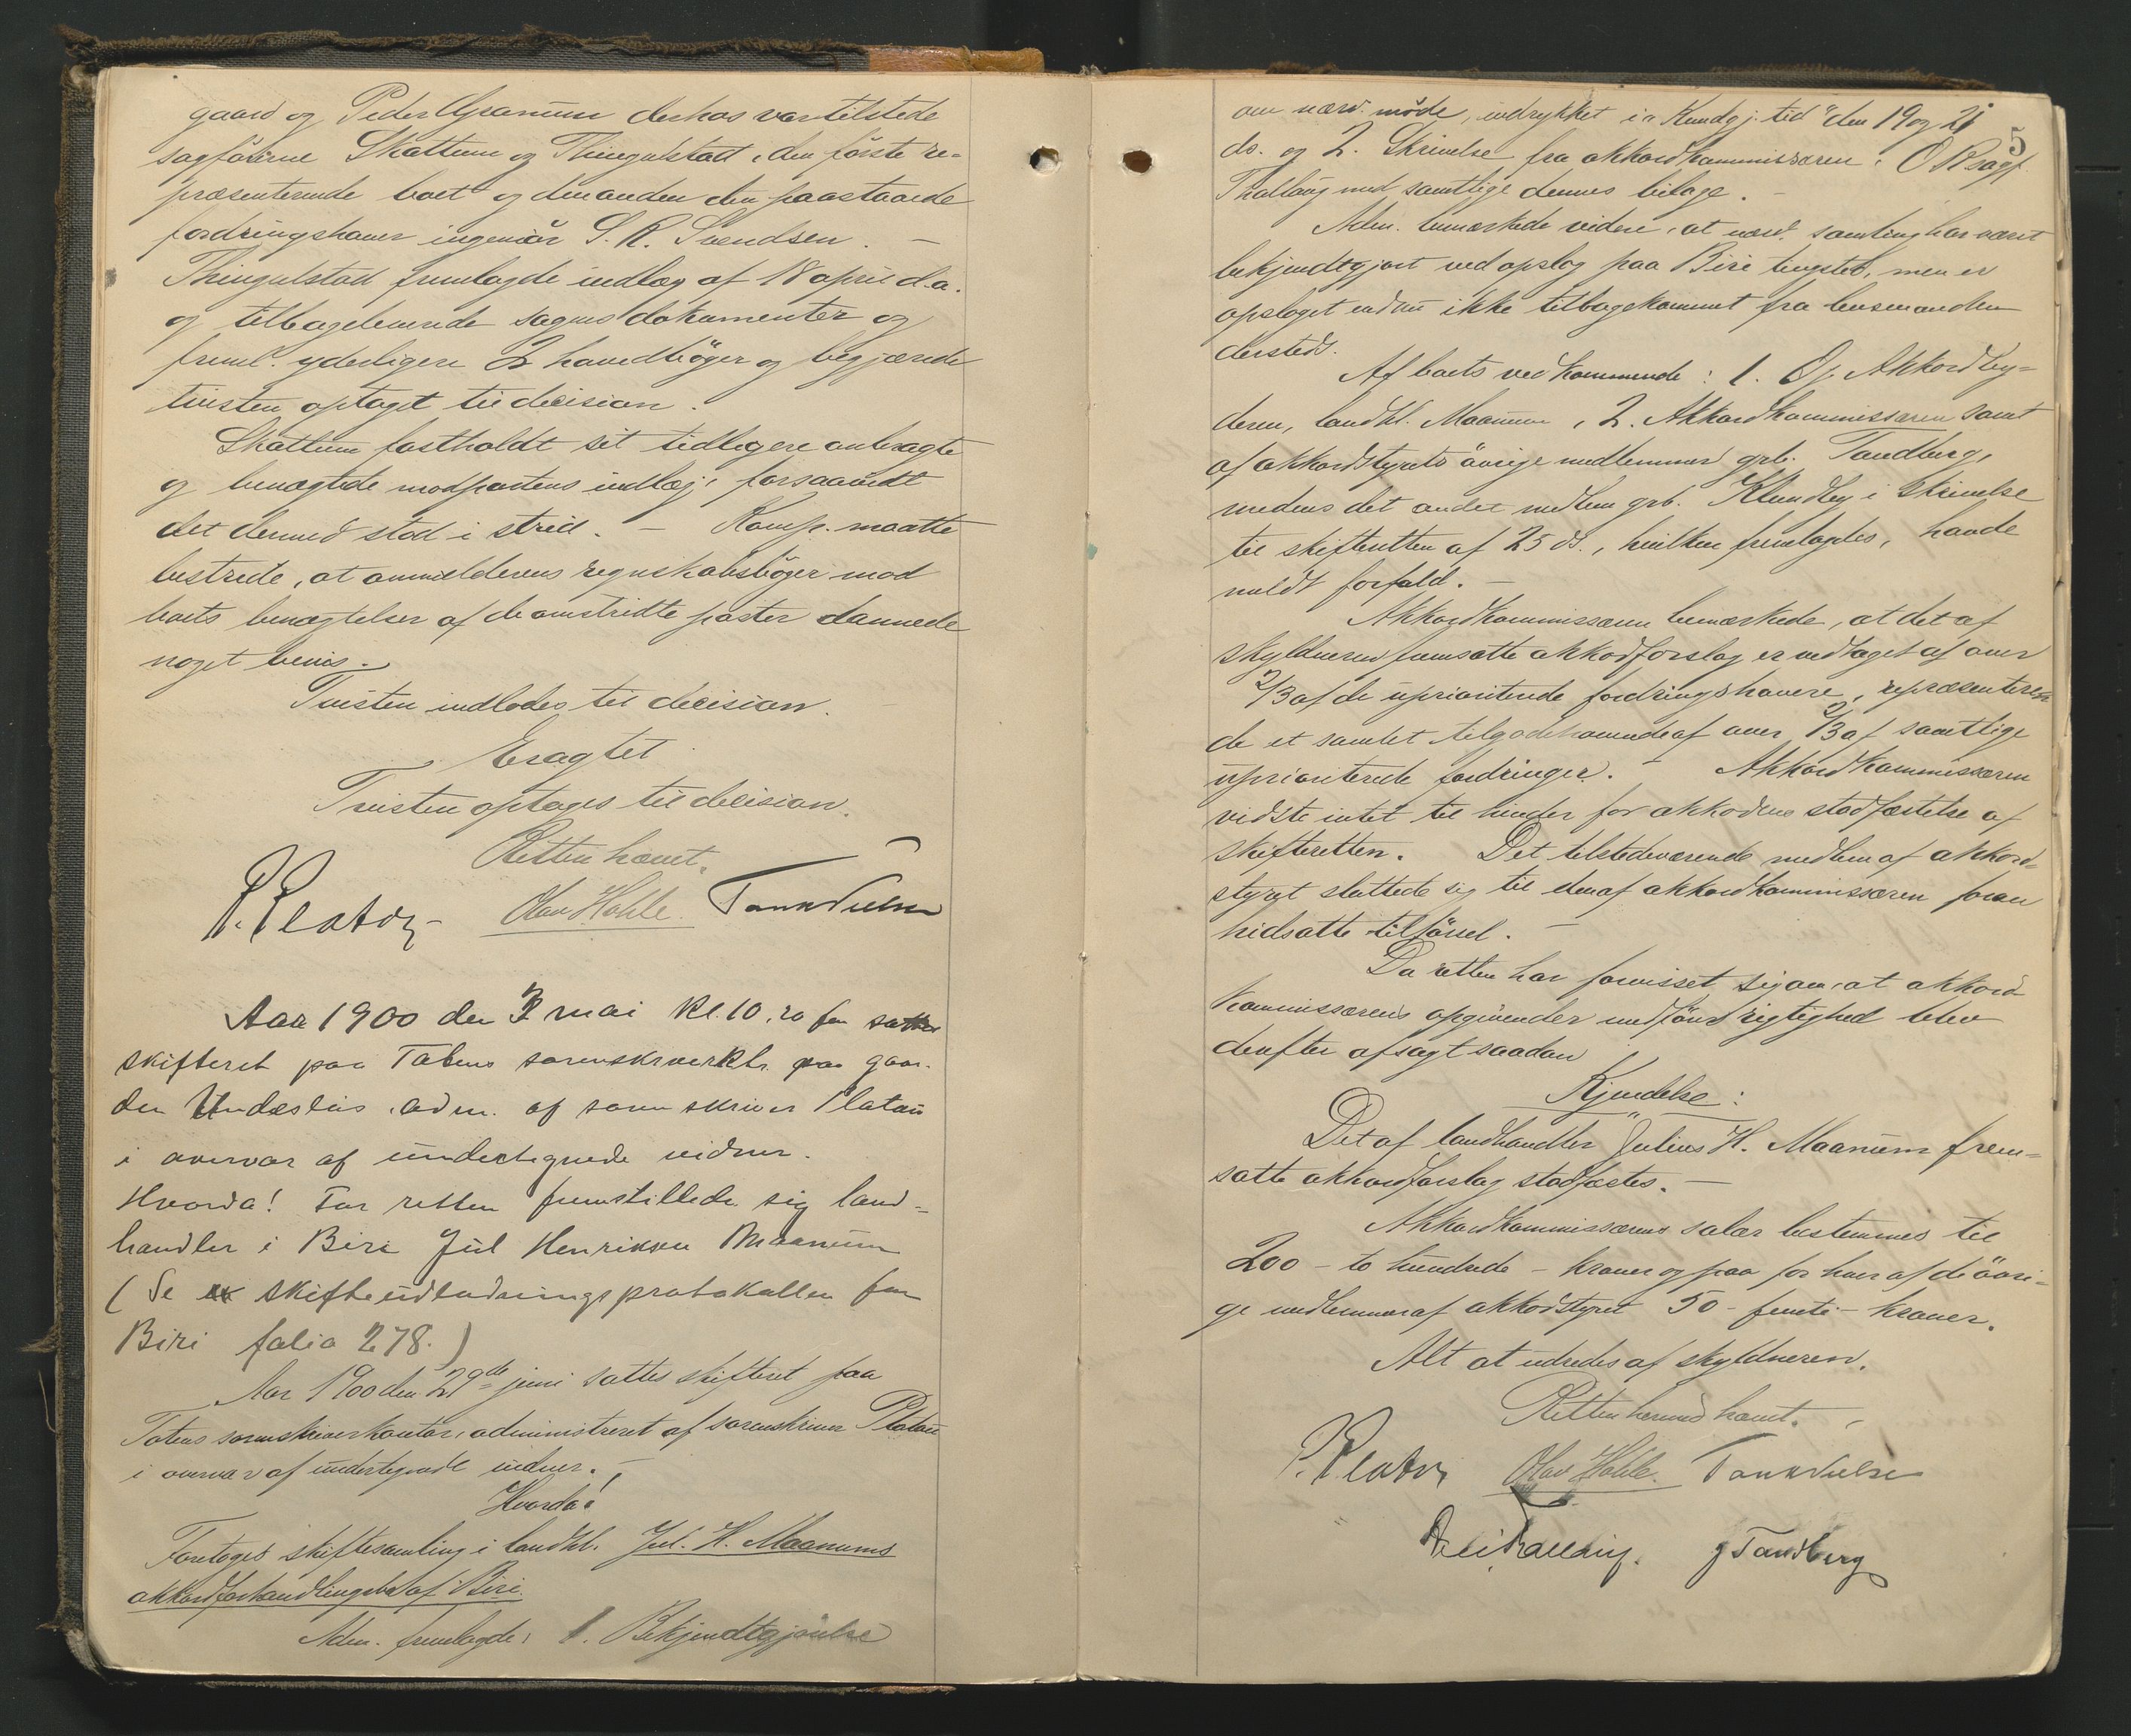 gaard og Peder Granum derhos var tilstede
sagförerne Skattum og Thingulstad, den förste re-
præsenterende boet og den anden den paastaaede
fordringshaver ingeniör S. R. Svendsen. —
Thingulstad fremlagde indlæg af 18 april d.a.
og tilbageleverede sagens dokumenter og
freml. yderligere 2 hovedböger og begjærede
tvisten optaget til decision.
Skattum fastholdt sit tidligere anbragte
og benægtede modpartens indlæg, forsaavidt
det dermed stod i strid. — Komp. maatte
bestride, at anmelderens regnskabsböger mod
boets benægtelser af de omstridte poster dannede
noget bevis.
Tvisten indlodes til decision.
Eragtet
Tvisten optages til decision.
Retten hævet.
P. Platou Olav Hohle Tank Nielsen
Aar 1900 den 3 mai kl. 10.20 fm sattes
skifteret paa Totens sorenskriverktr. paa gaar-
den Undeslös adm. af sorenskriver Platou
i overvær af undertegnede vidner.
Hvorda! For retten fremstillede sig land-
handler i Biri Jul Henriksen Maanum
(Se skifteudlodningsprotokollen for
Biri folio 278.)
Aar 1900 den 29de juni sattes skifteret paa
Totens sorenskriverkontor, administreret af sorenskriver Platou
i overvær af undertegnede vidner. —
Hvorda!
Foretoges skiftesamling i landhl. Jul. H. Maanums
akkordforhandlingsbo af Biri.
Adm. fremlagde: 1. Bekjendtgjörelse
5
om nærv. möde, indrykket i "Kundgj. tid" den 19 og 21
ds. og 2. Skrivelse fra akkordkommissæren, O R sagf.
Thallaug med samtlige dennes bilage. —
Adm. bemærkede videre, at nærv. samling har været
bekjendtgjort ved opslag paa Biri tingsted, men er
opslaget endnu ikke tilbagekommet fra lensmanden
dersteds.
Af boets vedkommende: 1. Akkordby-
deren, landhl. Maanum, 2. Akkordkommissæren samt
af akkordstyrets övrige medlemmer grb. Tandberg,
medens det andet medlem grb. Klundby i skrivelse
til skifteretten af 25 ds., hvilken fremlagdes, havde
meldt forfald. —
Akkordkommissæren bemærkede, at det af
skyldneren fremsatte akkordforslag er vedtaget af over
2/3 af de uprioriterede fordringshavere, repræsenteren-
de et samlet tilgodehavende af over 2/3 af samtlige
uprioriterede fordringer. — Akkordkommissæren
vidste intet til hinder for akkordens stadfæstelse af
skifteretten. Det tilstedeværende medlem af akkord-
styret sluttede sig til den af akkordkommissæren foran
hidsatte tilförsel. —
Da retten har forvisset sig om, at akkord-
kommissærens opgivender medförer rigtighed blev
derefter afsagt saadan
Kjendelse:
Det af landhandler Julius H. Maanum frem-
satte akkordforslag stadfæstes. —
Akkordkommissærens salær bestemmes til
200 - to hundrede - kroner og paa for hver af de övri-
ge medlemmer af akkordstyret 50 - femti - kroner.
Alt at udredes af skyldneren.
Retten herved hævet.
P. Platou Olav Hohle. Tank Nielsen
Thallaug. J Tandberg